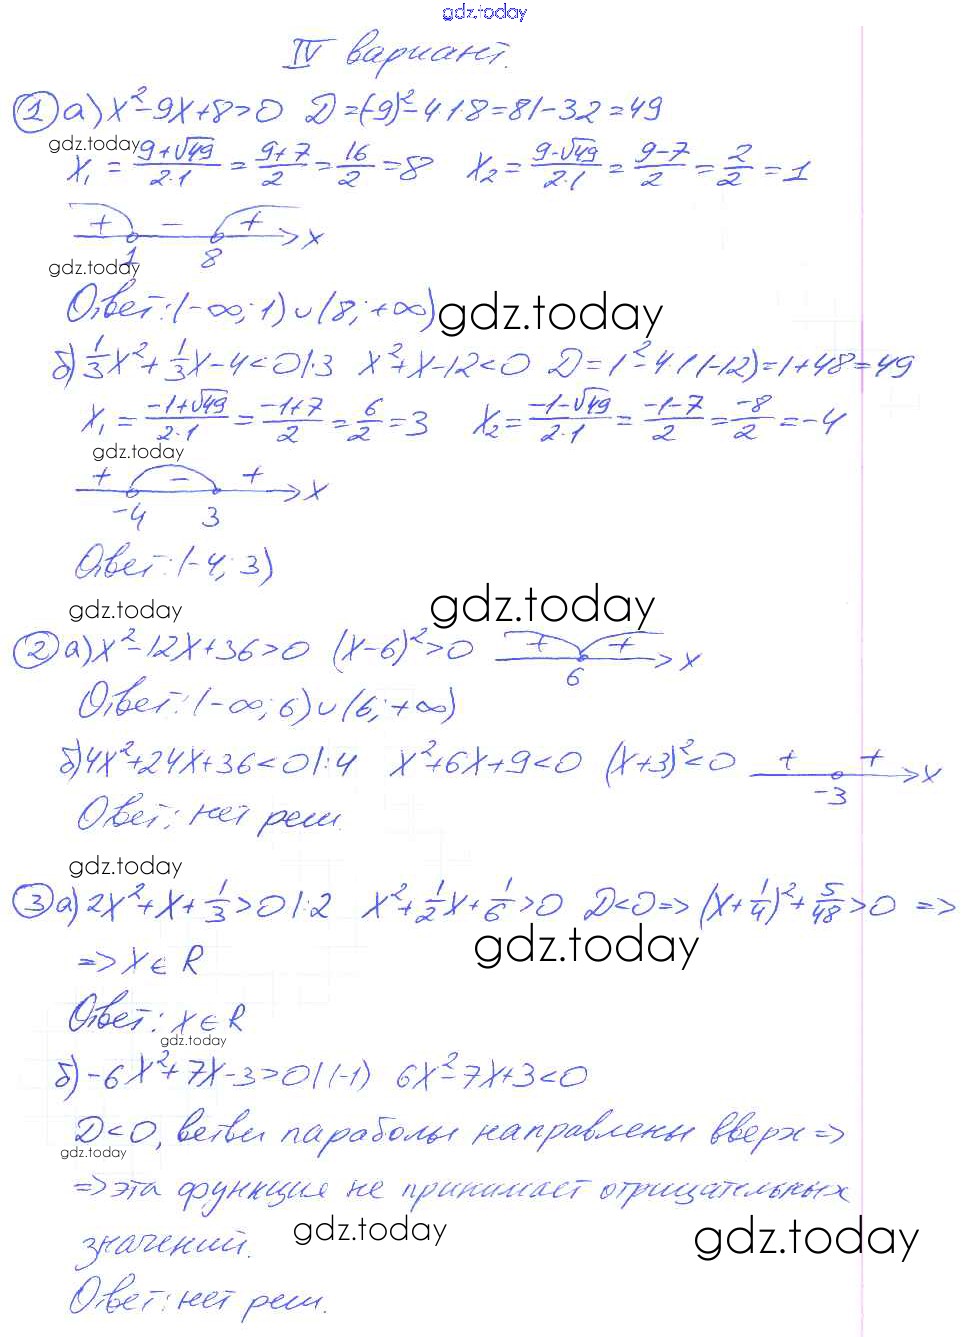 gdz.today
IV вариант.
① а) x²-9x+8>0 D=(-9)²-4·1·8=81-32=49
gdz.today
x₁ = (9+√49)/(2·1) = (9+7)/2 = 16/2 = 8 x₂ = (9-√49)/(2·1) = (9-7)/2 = 2/2 = 1
+ - + x
1 8
gdz.today
Ответ: (-∞; 1) ∪ (8; +∞)
gdz.today
б) 1/3x² + 1/3x - 4 < 0 |·3 x²+x-12<0 D=1²-4·1·(-12)=1+48=49
x₁ = (-1+√49)/(2·1) = (-1+7)/2 = 6/2 = 3 x₂ = (-1-√49)/(2·1) = (-1-7)/2 = -8/2 = -4
gdz.today
+ - + x
-4 3
Ответ: (-4; 3)
gdz.today gdz.today
② а) x²-12x+36>0 (x-6)²>0 + + x
6
Ответ: (-∞; 6) ∪ (6; +∞)
б) 4x²+24x+36<0 |:4 x²+6x+9<0 (x+3)²<0 + + x
-3
Ответ: нет реш.
gdz.today
③ а) 2x²+x+1/3>0 |:2 x²+1/2x+1/6>0 D<0 => (x+1/4)²+5/48>0 =>
gdz.today
=> x∈R
Ответ: x∈R
gdz.today
б) -6x²+7x-3>0 |·(-1) 6x²-7x+3<0
D<0, ветви параболы направлены вверх =>
gdz.today
=> эта функция не принимает отрицательных
gdz.today gdz.today
значений.
Ответ: нет реш.